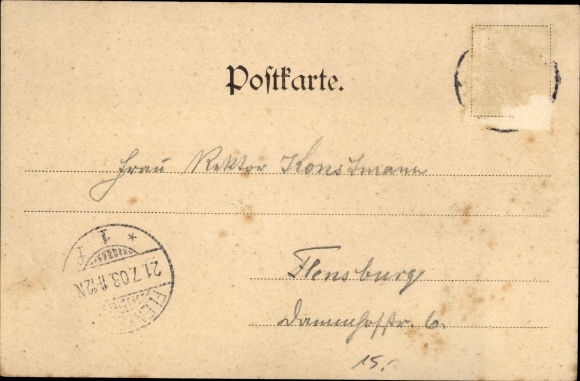 Postkarte.
Frau Rektor Konstmann
Flensburg
Dammhofstr. 6.
15,-
* 1
21.7.03. 11-12N.
FLENS